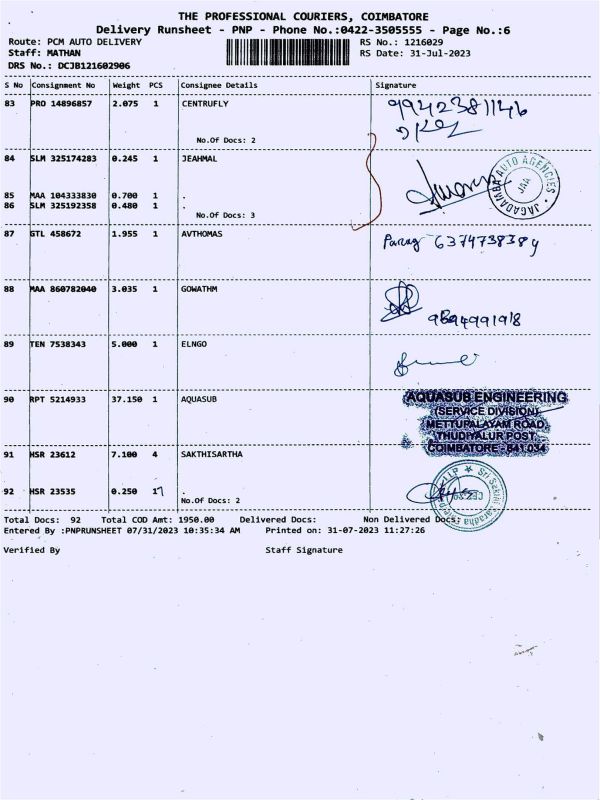 THE PROFESSIONAL COURIERS, COIMBATORE
Delivery Runsheet - PNP - Phone No.:0422-3505555 - Page No.:6
Route: PCM AUTO DELIVERY RS No.: 1216029
Staff: MATHAN RS Date: 31-Jul-2023
DRS No.: DCJB121602906
S No Consignment No Weight PCS Consignee Details Signature
83 PRO 14896857 2.075 1 CENTRUFLY
No.Of Docs: 2
84 SLM 325174283 0.245 1 JEAHMAL
JAGADAMBA AUTO AGENCIES
JAA
85 MAA 104333830 0.700 1 .
86 SLM 325192358 0.480 1 .
No.Of Docs: 3
87 GTL 458672 1.955 1 AVTHOMAS
88 MAA 860782040 3.035 1 GOWATHM
89 TEN 7538343 5.000 1 ELNGO
90 RPT 5214933 37.150 1 AQUASUB
AQUASUB ENGINEERING
(SERVICE DIVISION)
METTUPALAYAM ROAD,
THUDIYALUR POST,
COIMBATORE - 641 034
91 HSR 23612 7.100 4 SAKTHISARTHA
92 HSR 23535 0.250 .
No.Of Docs: 2
Total Docs: 92 Total COD Amt: 1950.00 Delivered Docs: Non Delivered Docs:
Entered By :PNPRUNSHEET 07/31/2023 10:35:34 AM Printed on: 31-07-2023 11:27:26
Verified By Staff Signature